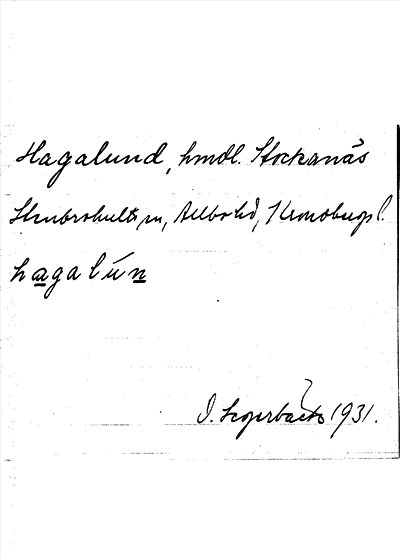 Hagalund, hmdl. Stockanäs
Stenbrohults sn, Allbo hd, Kronobergs l.
hagalún
I. Segerbäck 1931.